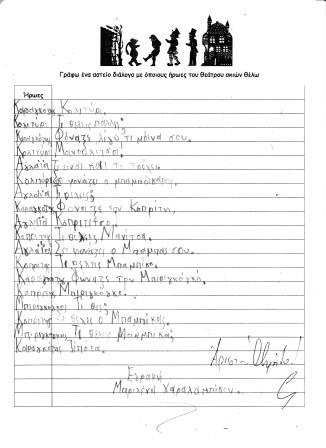 Γράφω ένα αστείο διάλογο με όποιους ήρωες του θεάτρου σκιών θέλω
Ήρωες
Καραγκιόζης Κολητήρι.
Κολητύρι Τι θέλεις μπαμπά;
Καραγκιόζης Φώναξε λίγο τη μάνα σου.
Κολητυρι Μανουλίτσα.
Αγλαϊα Τι είναι και το
Κολητύρι Σε φωνάζει ο μπαμπάκαρος.
Αγλαϊα Τι θέλεις;
Καραγκιόζης Φώναξε τον Κοπρίτη.
Αγλαϊα Κοπρίτη
Κοπρίτης Τι θέλεις Μανίτσα.
Αγλαϊα Σε φωνάζει ο Μπαμπάς σου.
Κοπρίτης Τι θέλης Μπαμπάκο.
Καραγκιόζης Φώναξε τον Μπιριγκόγκο.
Κοπρίτης Μπιριγκόγκο.
Μπιριγκόγκος Τι θες;
Κοπρίτης Σε θέλει ο Μπαμπάκας.
Μπιριγκόγκος Τι θέλεις Μπαμπάκα;
Καραγκιόζης Τίποτα.
Εργασία
Μαριλένα Χαραλάμπους.